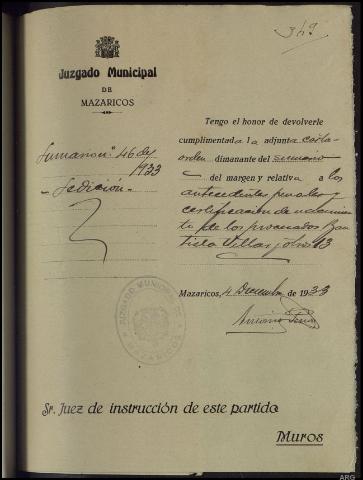 349
Juzgado Municipal
DE
MAZARICOS
Sumario nº 46 de
1933
Sedición
Tengo el honor de devolverle
cumplimentada la adjunta carta-
orden dimanante del sumario
del margen y relativa a los
antecedentes penales y
certificación de nacimien
to de los procesados
Villar y otros 13
Mazaricos, 4 Diciembre de 1933
Antonio
JUZGADO MUNICIPAL
MAZARICOS
Sr. Juez de instrucción de este partido
Muros
ARG